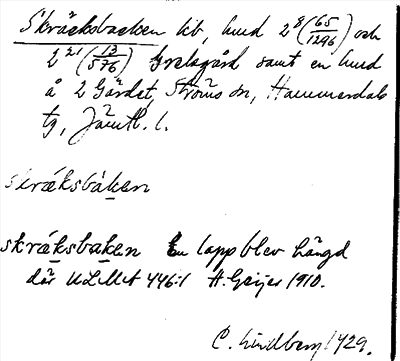 Skräcksbacken lib, hud 2⁸(65/1296) och
2²¹(13/576) Grelsgård samt en hud
å 2 Gärdet, Ströms sn, Hammerdals
tg, Jämtl. l.
skrǽksbàken
skrǽksbaken En lapp blev hängd
där ULMA 446:1 H. Geijer 1910.
C. Lindberg 1929.